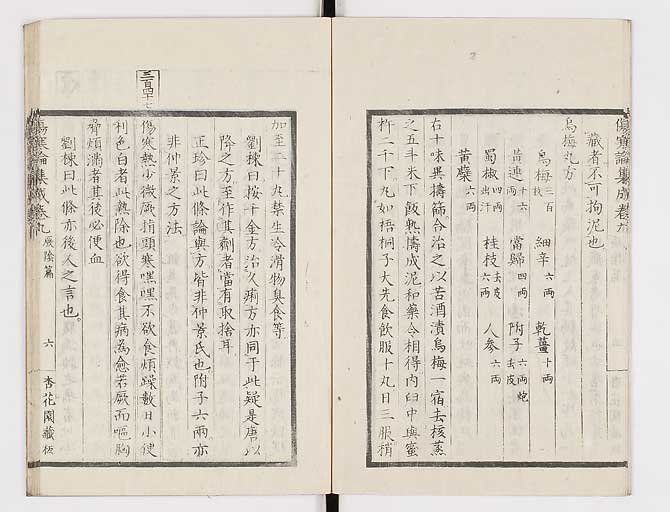 傷寒論集成卷九
藏者不可拘泥也
烏梅丸方
烏梅三百枚 細辛六兩 乾薑十兩
黃連十六兩 當歸四兩 附子六兩炮去皮
蜀椒四兩出汗 桂枝去皮六兩 人參六兩
黃蘗六兩
右十味異擣篩合治之以苦酒漬烏梅一宿去核蒸
之五斗米下飯熟擣成泥和藥令相得內臼中與蜜
杵二千下丸如梧桐子大先食飲服十丸日三服稍
加至二十丸禁生冷滑物臭食等
劉棟曰按千金方治久痢方亦同于此疑是唐以
降之方至作其劑者當有取捨耳
正珍曰此條論與方皆非仲景氏也附子六兩亦
非仲景之方法
三百四十七
傷寒熱少微厥指頭寒嘿嘿不欲食煩躁數日小便
利色白者此熱除也欲得食其病為愈若厥而嘔胸
脅煩滿者其後必便血
劉棟曰此條亦後人之言也
傷寒論集成卷九 厥陰篇 六 杏花園藏板